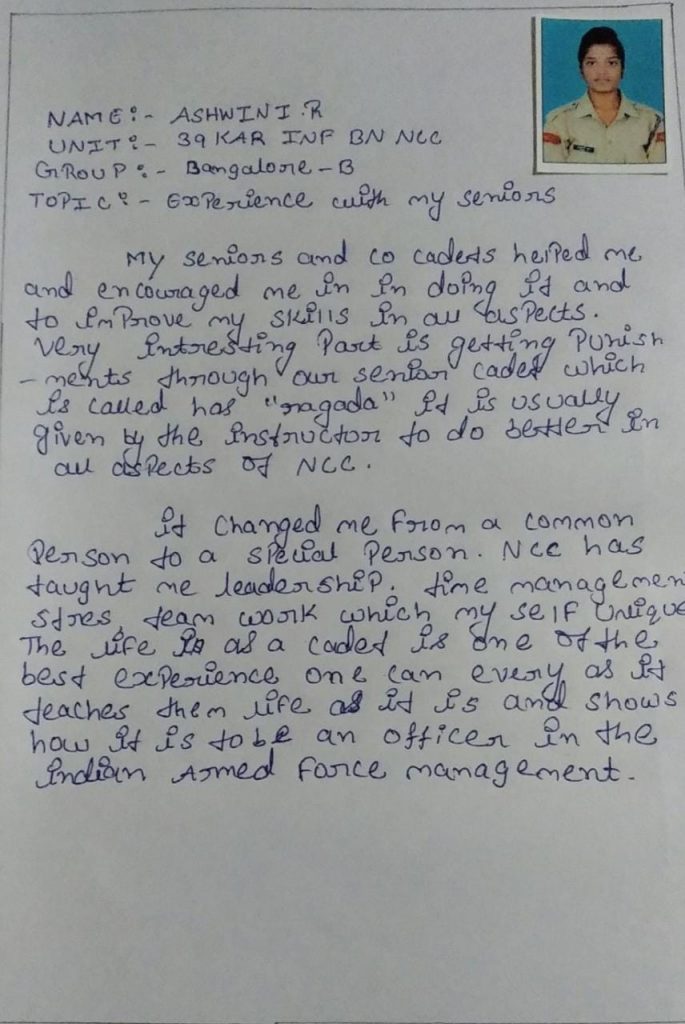 NAME:- ASHWINI.R
UNIT:- 39 KAR INF BN NCC
GROUP:- Bangalore-B
TOPIC:- Experience with my seniors
My seniors and co cadets helped me
and encouraged me in in doing it and
to improve my skills in all aspects.
Very intresting Part is getting Punish
-ments through our senior cadet which
is called has "ragada" it is usually
given by the instructor to do better in
all aspects of NCC.
it changed me from a common
Person to a special Person. NCC has
taught me leadership. time managemen
stres, team work which my self unique
The life is as a cadet is one of the
best experience one can every as it
teaches them life as it is and shows
how it is to be an officer in the
indian Armed force management.